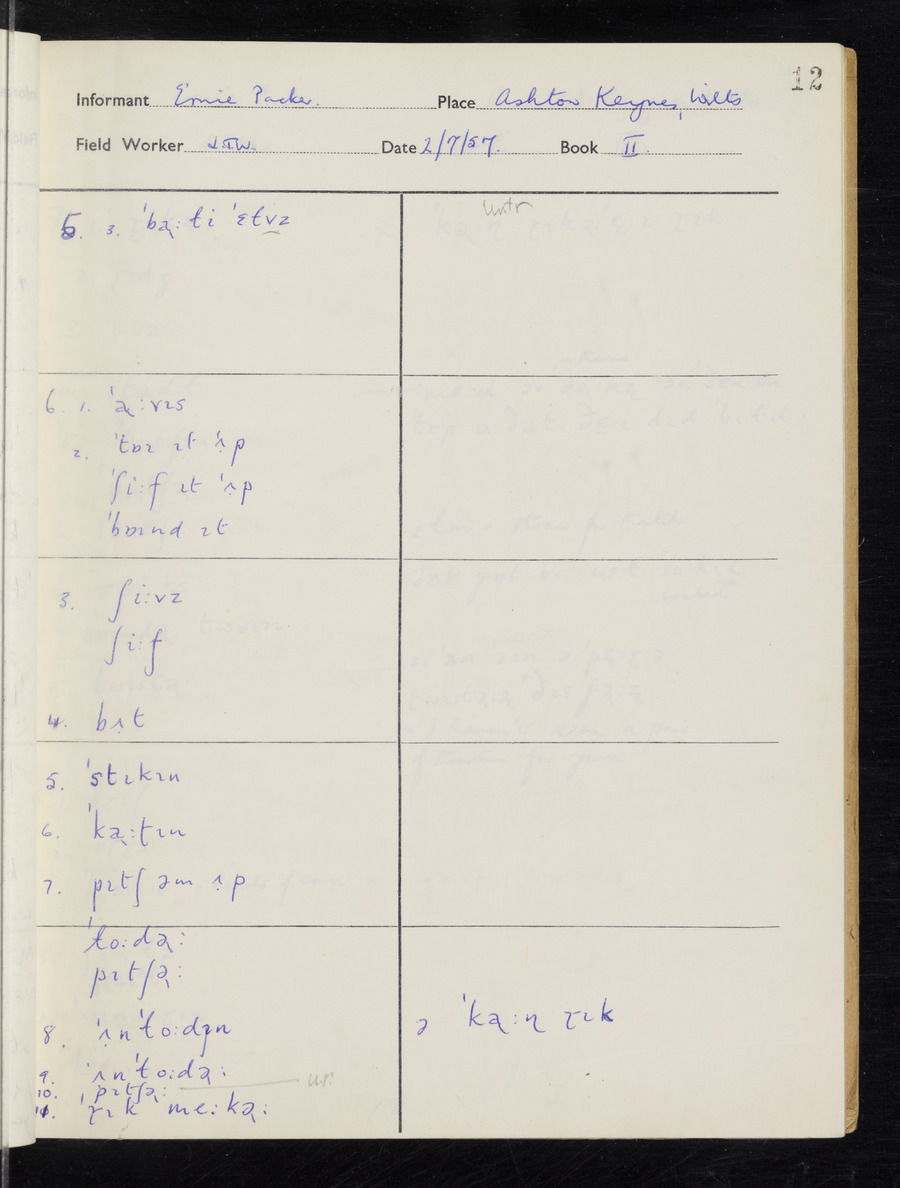 12
Informant Ernie Packer. Place Ashton Keynes, Wilts
Field Worker Date 2/7/57. Book II.
5. 3. ˈbə̢ːti ˈɛtvz
6. 1. ˈə̢ːvɪs
2. ˈtɒɪ ɪt ˈʌ̣p
ˈʃiːf ɪt ˈʌ̣p
ˈbɒɪnd ɪt
3. ʃiːvz
ʃiːf
4. bʌ̣t
5. ˈstɪkɪn
6. ˈkə̢ːtɪn
7. pɪtʃ əm ʌ̣p
ˈtoːdə̢ː
pɪtʃə̢ː
8. ˈʌ̣nˈtoːdə̢n ə ˈkə̢ːɳ ɽɪk
9. ˈʌnˈtoːdə̢ː
10. ˈpɪtʃə̢ː
11. ˈɽɪk meːkə̢ː